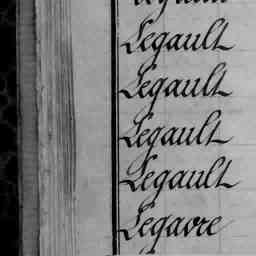 Legault
Legault
Legault
Legault
Legavre